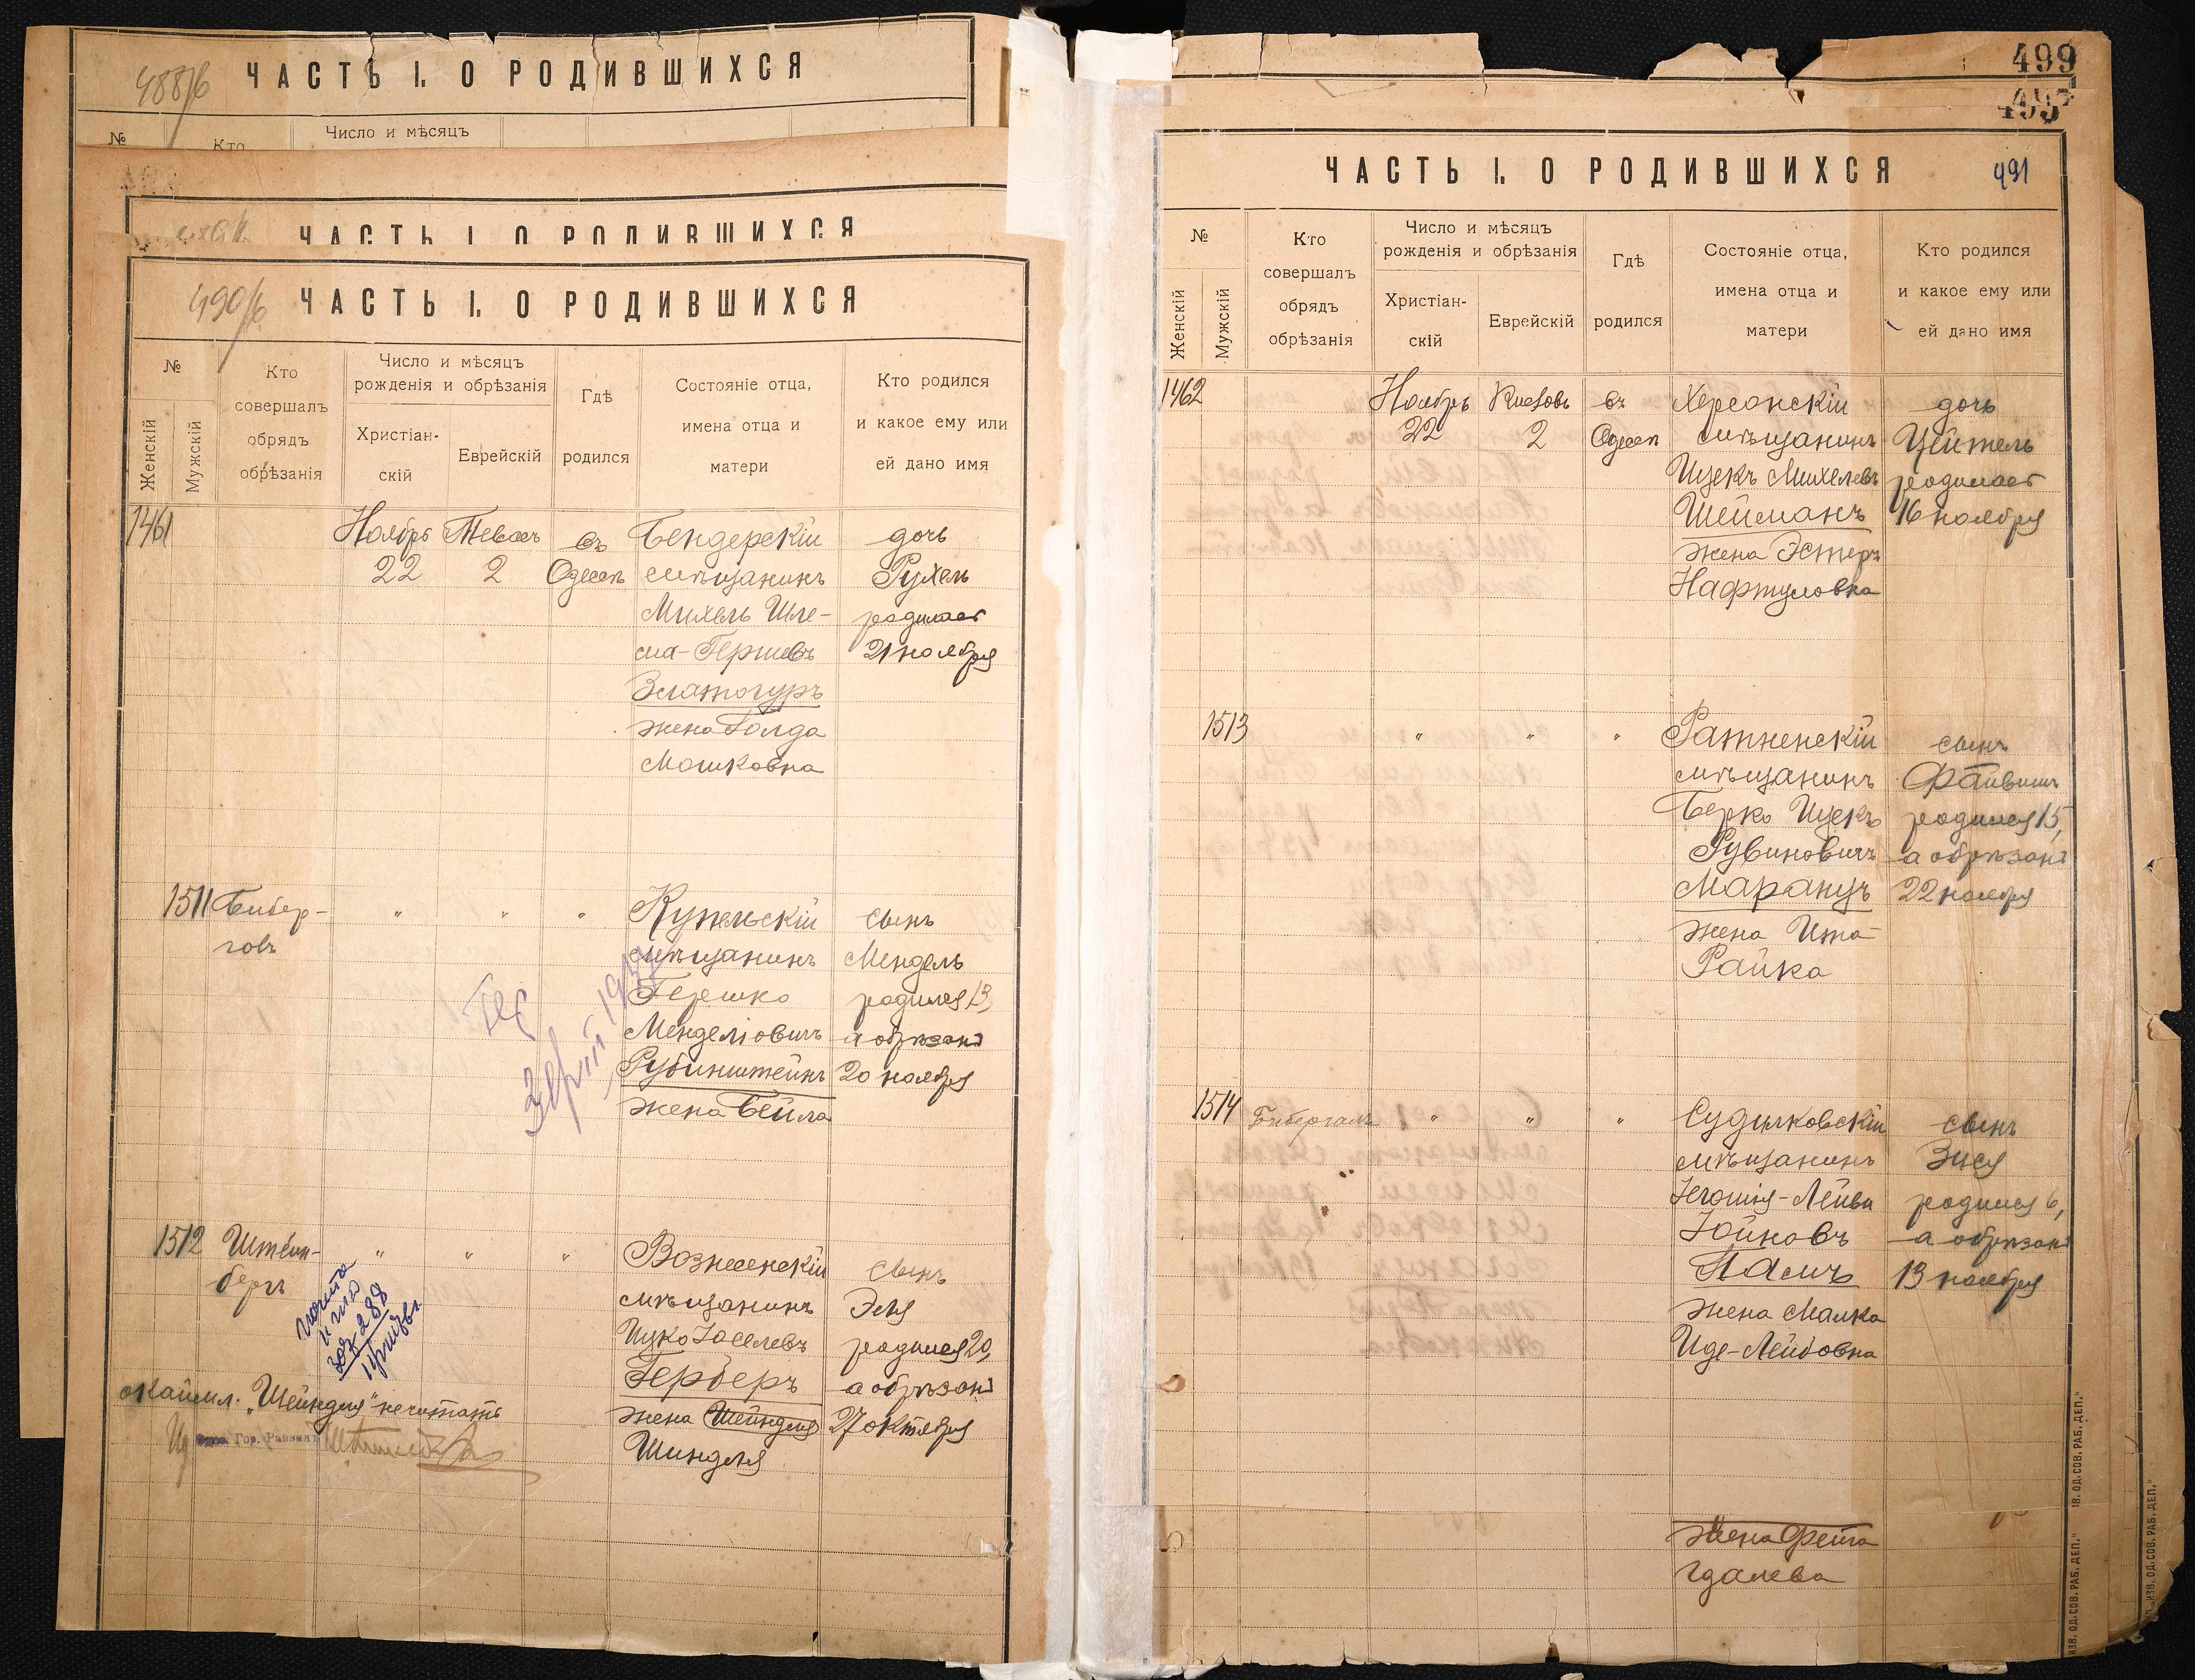 488/б ЧАСТЬ I. О РОДИВШИХСЯ
№
Кто
Число и мѣсяцъ
ЧАСТЬ I. О РОДИВШИХСЯ
490/б ЧАСТЬ I. О РОДИВШИХСЯ
№
Женскій
Мужскій
Кто
совершалъ
обрядъ
обрѣзанія
Число и мѣсяцъ
рожденія и обрѣзанія
Христіан-
скій
Еврейскій
Гдѣ
родился
Состояніе отца,
имена отца и
матери
Кто родился
и какое ему или
ей дано имя
1461
Ноябрь
22
Тевесъ
2
въ
Одессѣ
Бендерскій
мѣщанинъ
Михель Шле-
ма-Гершевъ
Златогуръ
жена Голда
Мошковна
дочь
Рухель
родилась
21 ноября
1511
Бибер-
говъ
"
"
"
Купельскій
мѣщанинъ
Гершко
Менделіовичъ
Рубинштейнъ
жена Бейла
сынъ
Мендель
родился 13,
а обрѣзанъ
20 ноября
1512
Штейн-
бергъ
"
"
"
Вознесенскій
мѣщанинъ
Ицко Іоселевъ
Герберъ
жена Шейндля
Шиндля
сынъ
Эля
родился 20,
а обрѣзанъ
27 октября
288
окаймл. "Шейндля" нечитать
Гор. Раввинъ
499
ЧАСТЬ I. О РОДИВШИХСЯ 491
№
Женскій
Мужскій
Кто
совершалъ
обрядъ
обрѣзанія
Число и мѣсяцъ
рожденія и обрѣзанія
Христіан-
скій
Еврейскій
Гдѣ
родился
Состояніе отца,
имена отца и
матери
Кто родился
и какое ему или
ей дано имя
1462
Ноябрь
22
Кислевъ
2
въ
Одессѣ
Херсонскій
мѣщанинъ
Ицекъ Михелевъ
Шейманъ
жена Эстеръ
Нафтуловна
дочь
Цейтель
родилась
16 ноября
1513
"
"
"
Ратненскій
мѣщанинъ
Берко Ицекъ
Рувиновичъ
Маранцъ
жена Ита-
Райка
сынъ
Файвишъ
родился 15,
а обрѣзанъ
22 ноября
1514
Бибергалъ
"
"
"
Судилковскій
мѣщанинъ
Іегошія-Лейви
Іойновъ
жена Малка
Иде-Лейбовна
сынъ
Зися
родился 6,
а обрѣзанъ
13 ноября
жена Фейга
Гдалева
ИЗВ. ОД. СОВ. РАБ. ДЕП."
ИЗВ. ОД. СОВ. РАБ. ДЕП."
ИЗВ. ОД. СОВ. РАБ. ДЕП."